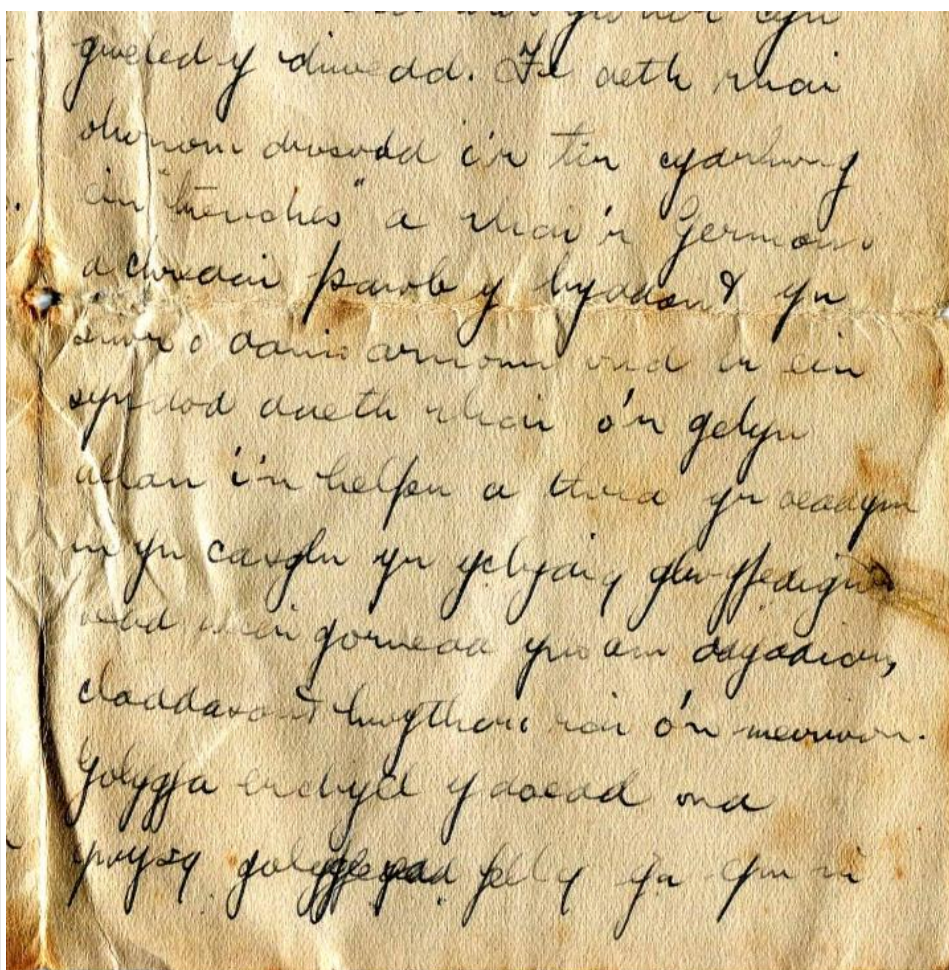 gweled y diwedd. Fe aeth rhai
ohonom drosodd i'r tir cydrhwng
ein "trenches" a rhai'r Germans
a chredai pawb y byddent yn
tanio arnom ond er ein
syndod daeth rhai o'r gelyn
allan i'n helpu a thra yr oeddym
ni yn casglu yn ychydig glwyfedigion
oedd rhai gorwedd yno am ddyddiau,
claddasont hwythau rai o'r meirwon.
Golygfa erchyll ydoedd ond
prysg fely yn